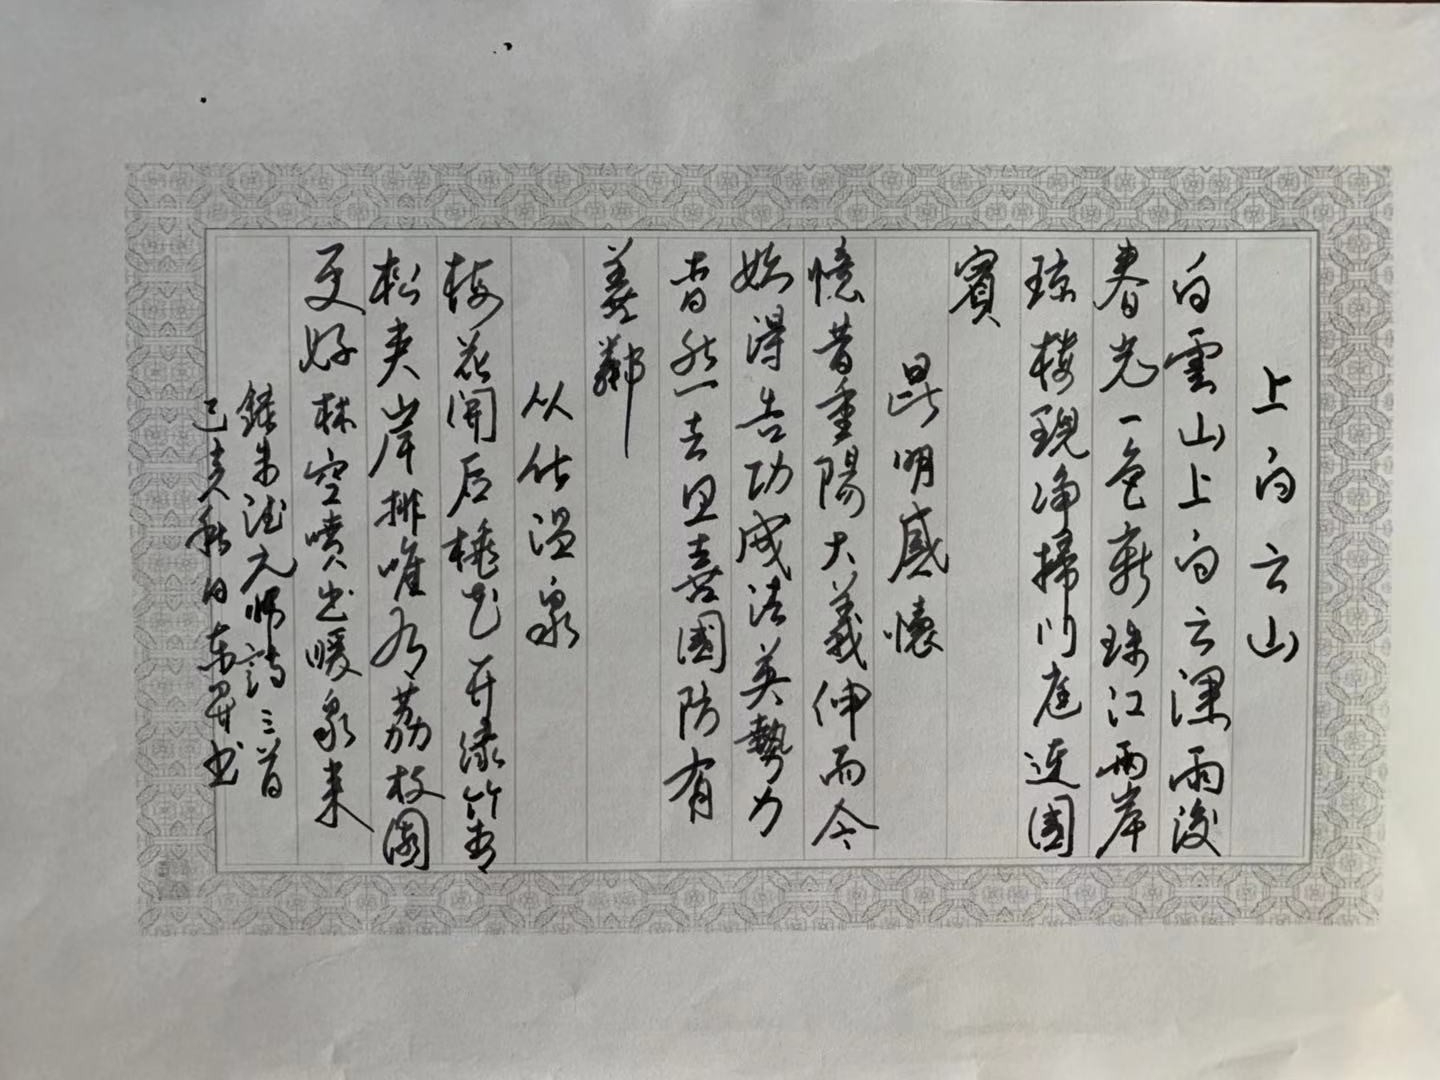 上白云山
白雲山上白云深雨後
春光一色新珠江兩岸
琼楼現净掃门庭迎國
賓
昆明感懷
憶昔重陽大義伸而今
始得告功成法英勢力
杳然一去且喜國防有
善鄰
从化温泉
梅花開后桃花开绿竹青
松夹岸排唯有荔枝園
更好林空喷出暖泉来
録朱德元帅詩三首
己亥秋日东昇书